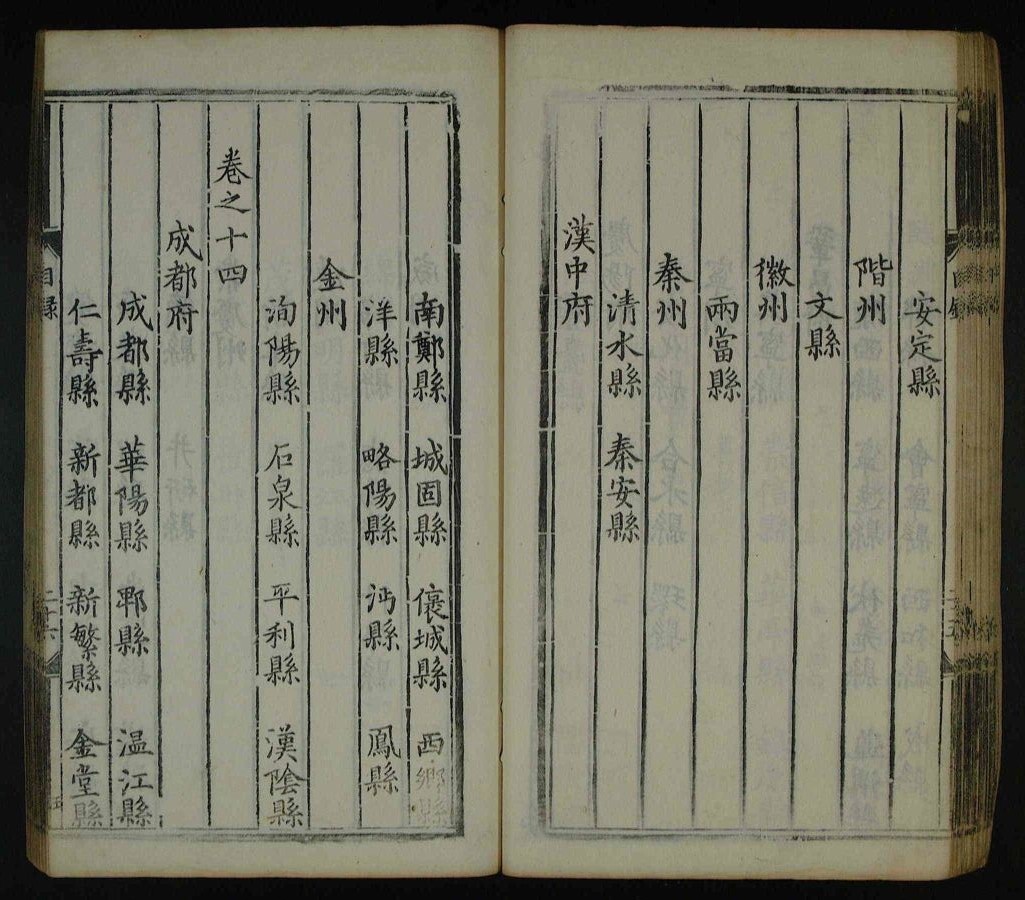 安定縣
階州
文縣
徽州
兩當縣
秦州
清水縣 秦安縣
漢中府
南鄭縣 城固縣 褒城縣 西鄉縣
洋縣 略陽縣 沔縣 鳳縣
金州
洵陽縣 石泉縣 平利縣 漢陰縣
卷之十四
成都府
成都縣 華陽縣 郫縣 温江縣
仁壽縣 新都縣 新繁縣 金堂縣
目録
二十六